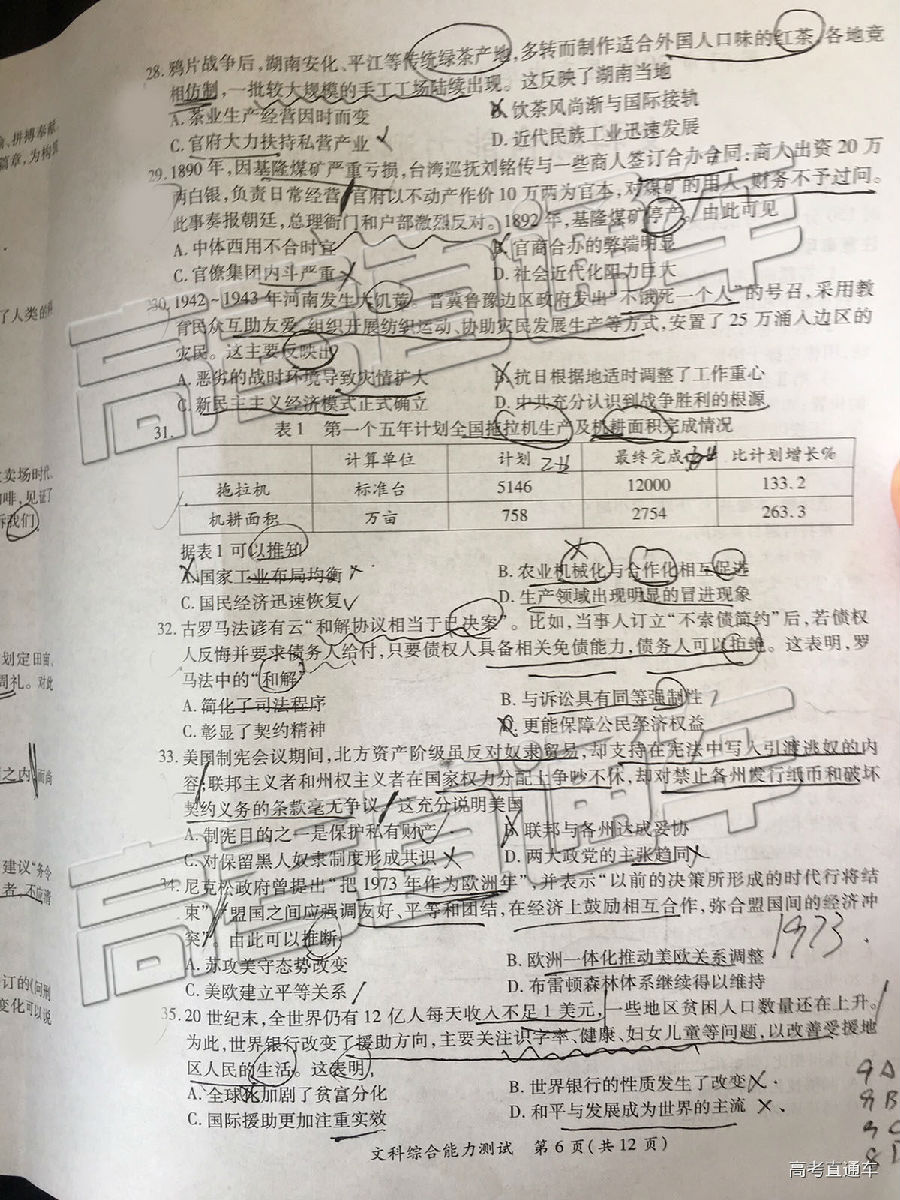 28. 鸦片战争后,湖南安化、平江等传统绿茶产地,多转而制作适合外国人口味的红茶,各地竞
相仿制,一批较大规模的手工工场陆续出现。这反映了湖南当地
A. 茶业生产经营因时而变
B. 饮茶风尚渐与国际接轨
C. 官府大力扶持私营产业
D. 近代民族工业迅速发展
29. 1890年,因基隆煤矿严重亏损,台湾巡抚刘铭传与一些商人签订合办合同:商人出资20万
两白银,负责日常经营,官府以不动产作价10万两为官本,对煤矿的用人、财务不予过问。
此事奏报朝廷,总理衙门和户部激烈反对。1892年,基隆煤矿停产。由此可见
A. 中体西用不合时宜
B. 官商合办的弊端明显
C. 官僚集团内斗严重
D. 社会近代化阻力巨大
30. 1942~1943年河南发生大饥荒。晋冀鲁豫边区政府发出“不饿死一个人”的号召,采用教
育民众互助友爱、组织开展纺织运动、协助灾民发展生产等方式,安置了25万涌入边区的
灾民。这主要反映出
A. 恶劣的战时环境导致灾情扩大
B. 抗日根据地适时调整了工作重心
C. 新民主主义经济模式正式确立
D. 中共充分认识到战争胜利的根源
31. 表1 第一个五年计划全国拖拉机生产及机耕面积完成情况
计算单位 计划 最终完成 比计划增长%
拖拉机 标准台 5146 12000 133.2
机耕面积 万亩 758 2754 263.3
据表1可以推知
A. 国家工业布局均衡
B. 农业机械化与合作化相互促进
C. 国民经济迅速恢复
D. 生产领域出现明显的冒进现象
32. 古罗马法谚有云“和解协议相当于已决案”。比如,当事人订立“不索债简约”后,若债权
人反悔并要求债务人给付,只要债权人具备相关免债能力,债务人可以拒绝。这表明,罗
马法中的“和解”
A. 简化了司法程序
B. 与诉讼具有同等强制性
C. 彰显了契约精神
D. 更能保障公民经济权益
33. 美国制宪会议期间,北方资产阶级虽反对奴隶贸易,却支持在宪法中写入引渡逃奴的内
容;联邦主义者和州权主义者在国家权力分配上争吵不休,却对禁止各州发行纸币和破坏
契约义务的条款毫无争议。这充分说明美国
A. 制宪目的之一是保护私有财产
B. 联邦与各州达成妥协
C. 对保留黑人奴隶制度形成共识
D. 两大政党的主张趋同
34. 尼克松政府曾提出“把1973年作为欧洲年”,并表示“以前的决策所形成的时代行将结
束”,“盟国之间应强调友好、平等和团结,在经济上鼓励相互合作,弥合盟国间的经济冲
突”。由此可以推断
1973.
A. 苏攻美守态势改变
B. 欧洲一体化推动美欧关系调整
C. 美欧建立平等关系
D. 布雷顿森林体系继续得以维持
35. 20世纪末,全世界仍有12亿人每天收入不足1美元,一些地区贫困人口数量还在上升。
为此,世界银行改变了援助方向,主要关注识字率、健康、妇女儿童等问题,以改善受援地
区人民的生活。这表明,
A. 全球化加剧了贫富分化
B. 世界银行的性质发生了改变
C. 国际援助更加注重实效
D. 和平与发展成为世界的主流
文科综合能力测试 第6页(共12页)
高考直通车
高考直通车
高考直通车
高考直通车